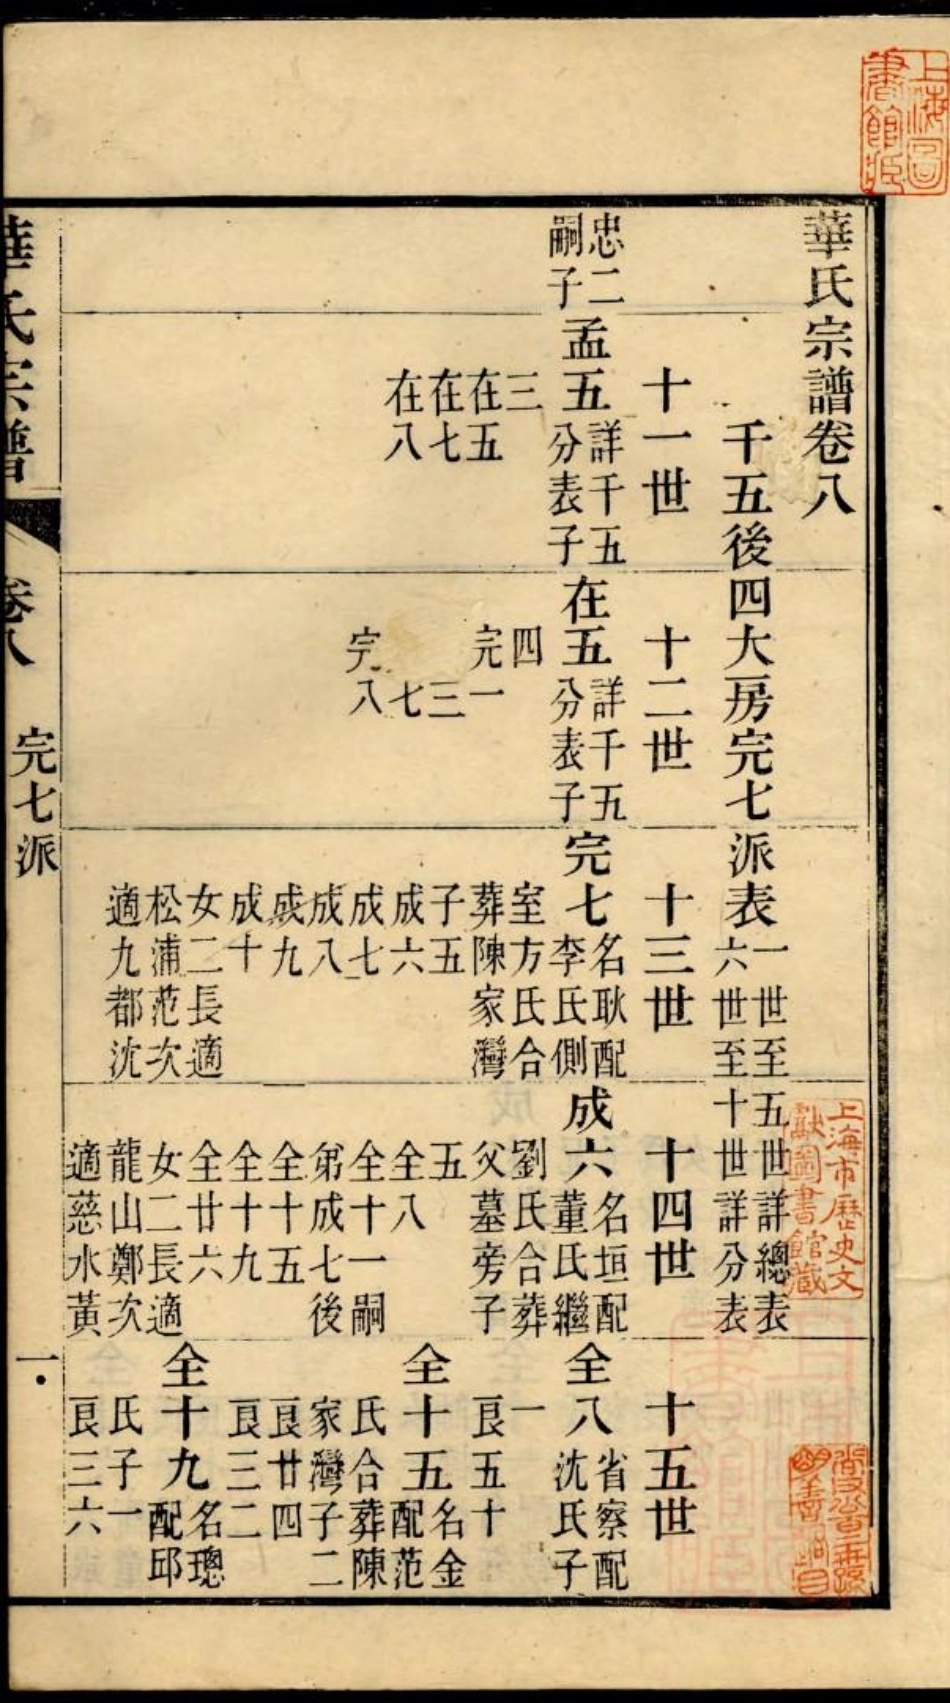 華氏宗譜卷八
千五後四大房完七派表
一世至五世詳總表
六世至十世詳分表
十一世
十二世
十三世
十四世
十五世
忠二
嗣子
孟五
詳千五
分表子
三
在五
在七
在八
在五
詳千五
分表子
四
完一
三
七
完八
完七
名耿配
李氏側
室方氏合
葬陳家灣
子五
成六
成七
成八
成九
成十
女二長適
松浦范次
適九都沈
成六
名垣配
董氏繼
劉氏合葬
父墓旁子
五
全八
全十一嗣
弟成七後
全十五
全十九
全廿六
女二長適
龍山鄭次
適慈水黃
全八
省察配
沈氏子
一
良五十
全十五
名金
配范
氏合葬陳
家灣子二
良廿四
良三二
全十九
名璁
配邱
氏子一
良三六
華氏宗譜
卷八
完七派
一
上海圖書館藏
上海市歷史文獻圖書館藏